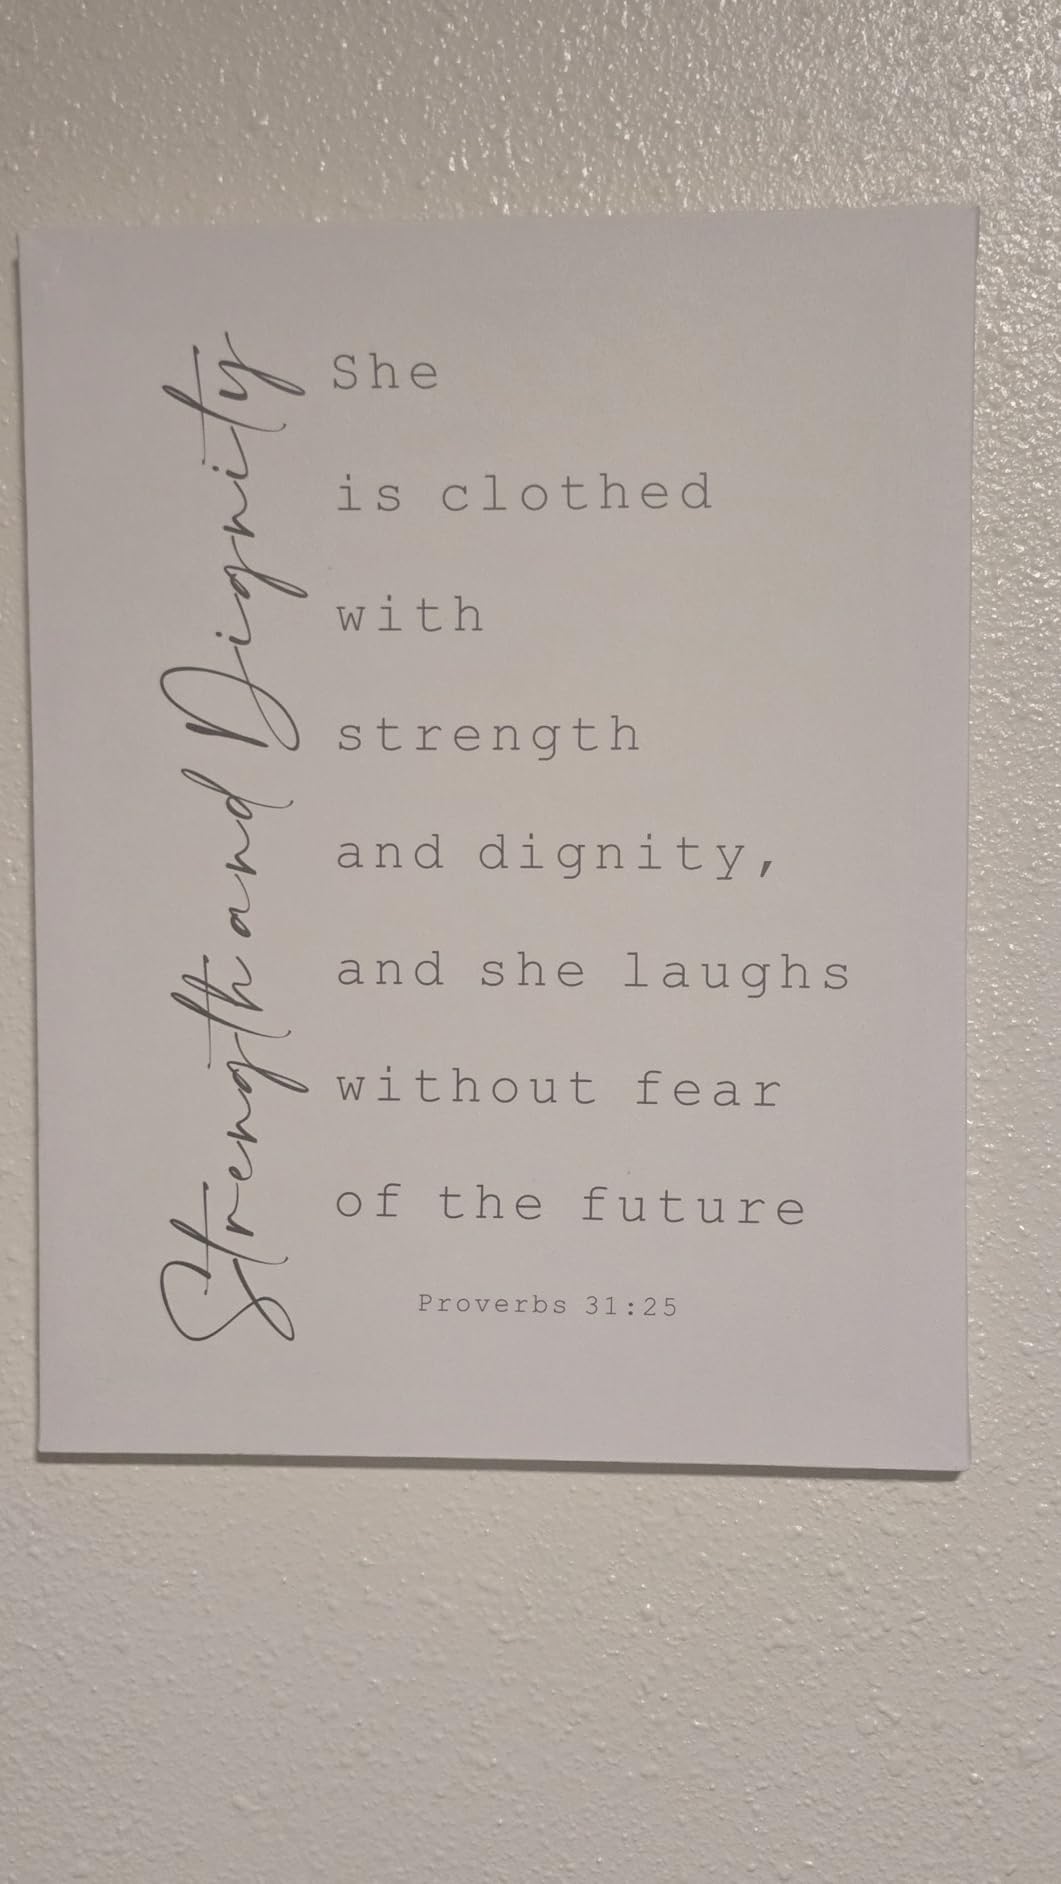 Strength and Dignity
She
is clothed
with
strength
and dignity,
and she laughs
without fear
of the future
Proverbs 31:25